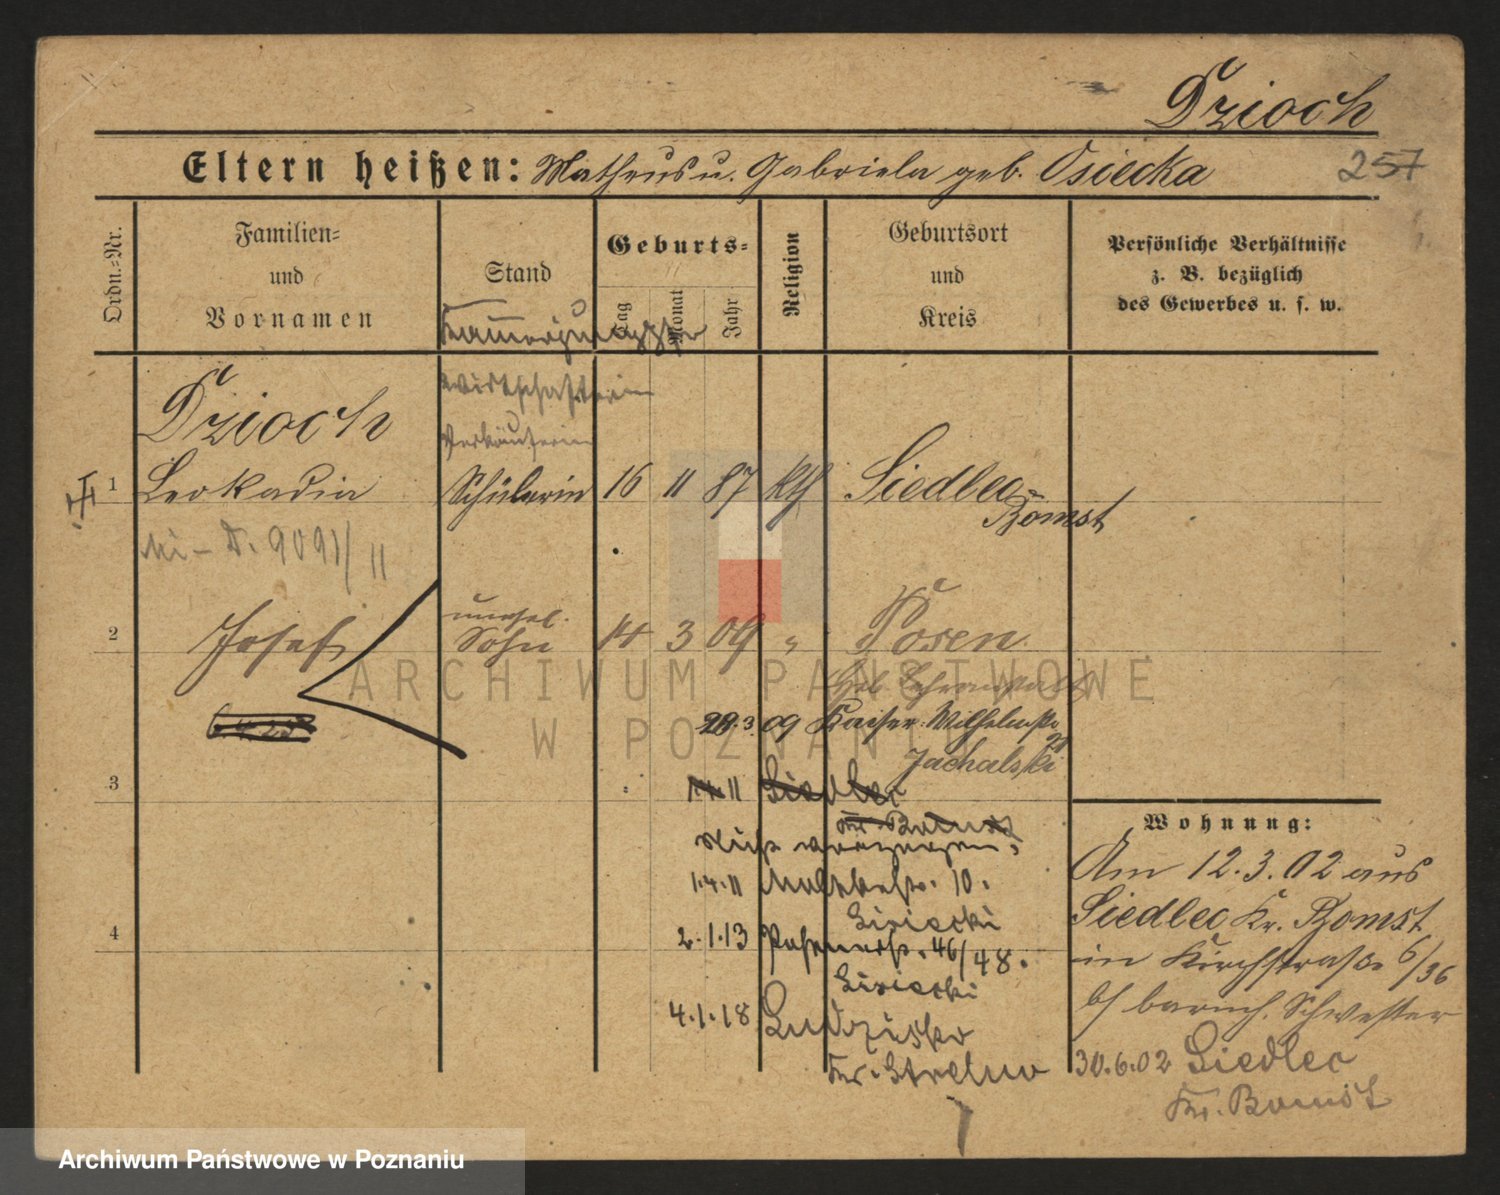 Dzioch
Eltern heißen: Matheus u. Gabriela geb. Osiecka
257
Ordn.=Nr.
Familien=
und
Vornamen
Stand
Geburts=
Tag
Monat
Jahr
Religion
Geburtsort
und
Kreis
Persönliche Verhältnisse
z. B. bezüglich
des Gewerbes u. s. w.
Wirtschafterin
Verkäuferin
Dzioch
1 Leokadia Schülerin 16 11 87 kth Siedlec-
Bomst
9091/11
2 Josef unehel. Sohn 14 3 09 " Posen
09 Kaiser Wilhelmstr.
Jachalski
3
11 Siedlec
Kr. Bomst
1.4.11 10.
Lisiecki
4
2.1.13 Posenerstr. 46/48.
Lisiecki
4.1.18 Ludzisko
Kr. Strelno
Wohnung:
Am 12.3.02 aus
Siedlec Kr. Bomst
in Kirchstraße 6/36
b/ Schwester
30.6.02 Siedlec
Kr. Bomst
ARCHIWUM PAŃSTWOWE
W POZNANIU
Archiwum Państwowe w Poznaniu